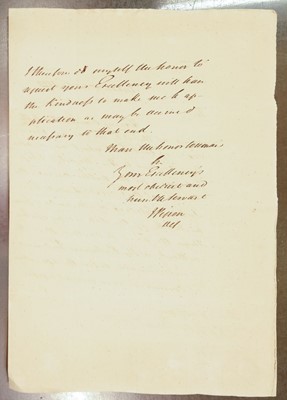 I therefore do myself the honor to
request your Excellency will have
the Kindness to make such ap-
plication as may be deemed
necessary to that end.
I have the honor to remain
Sir
Your Excellency's
most obedient and
humble servant